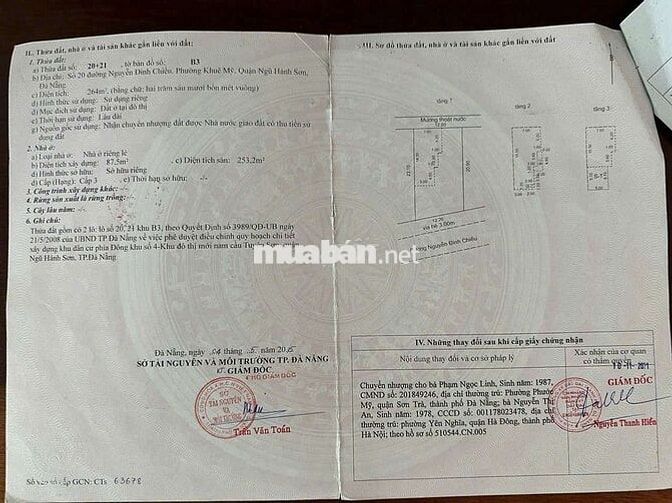 II. Thửa đất, nhà ở và tài sản khác gắn liền với đất
1. Thửa đất:
a) Thửa đất số: 20+21 , tờ bản đồ số: B3
b) Địa chỉ: Số 20 đường Nguyễn Đình Chiểu, Phường Khuê Mỹ, Quận Ngũ Hành Sơn,
Đà Nẵng
c) Diện tích: 264m², (bằng chữ: hai trăm sáu mươi bốn mét vuông)
d) Hình thức sử dụng: Sử dụng riêng
đ) Mục đích sử dụng: Đất ở tại đô thị
e) Thời hạn sử dụng: Lâu dài
g) Nguồn gốc sử dụng: Nhận chuyển nhượng đất được Nhà nước giao đất có thu tiền sử
dụng đất
2. Nhà ở:
a) Loại nhà ở: Nhà ở riêng lẻ
b) Diện tích xây dựng: 87,5m² , c) Diện tích sàn: 253,2m²
d) Hình thức sở hữu: Sở hữu riêng
đ) Cấp (Hạng): Cấp 3 , e) Thời hạn sở hữu: -/-
3. Công trình xây dựng khác: -/-
4. Rừng sản xuất là rừng trồng: -/-
5. Cây lâu năm: -/-
6. Ghi chú:
Thửa đất gồm 2 lô: lô số 20, 21 khu B3, theo Quyết Định số 3989/QĐ-UB ngày
21/5/2008 của UBND TP Đà Nẵng về việc phê duyệt điều chỉnh quy hoạch chi tiết
xây dựng khu dân cư phía Đông khu số 4-Khu đô thị mới nam cầu Tuyên Sơn, quận
Ngũ Hành Sơn, TP.Đà Nẵng
Đà Nẵng, ngày 04 tháng 5 năm 2015
SỞ TÀI NGUYÊN VÀ MÔI TRƯỜNG TP. ĐÀ NẴNG
GIÁM ĐỐC
PHÓ GIÁM ĐỐC
SỞ
TÀI NGUYÊN
VÀ
MÔI TRƯỜNG
Trần Văn Toán
Số vào sổ cấp GCN: CTs 63678
III. Sơ đồ thửa đất, nhà ở và tài sản khác gắn liền với đất
tầng 1
tầng 2
tầng 3
Mương thoát nước
12.00
20.90
12.20
vỉa hè 3.00m
Đường Nguyễn Đình Chiểu
muaban.net
IV. Những thay đổi sau khi cấp giấy chứng nhận
Nội dung thay đổi và cơ sở pháp lý
Xác nhận của cơ quan
có thẩm quyền
Chuyển nhượng cho bà Phạm Ngọc Linh, Sinh năm: 1987,
CMND số: 201849246, địa chỉ thường trú: Phường Phước
Mỹ, quận Sơn Trà, thành phố Đà Nẵng; bà Nguyễn Thị
An, Sinh năm: 1978, CCCD số: 001178023478, địa chỉ
thường trú: phường Yên Nghĩa, quận Hà Đông, thành phố
Hà Nội; theo hồ sơ số 510544.CN.005
GIÁM ĐỐC
Nguyễn Thanh Hiền